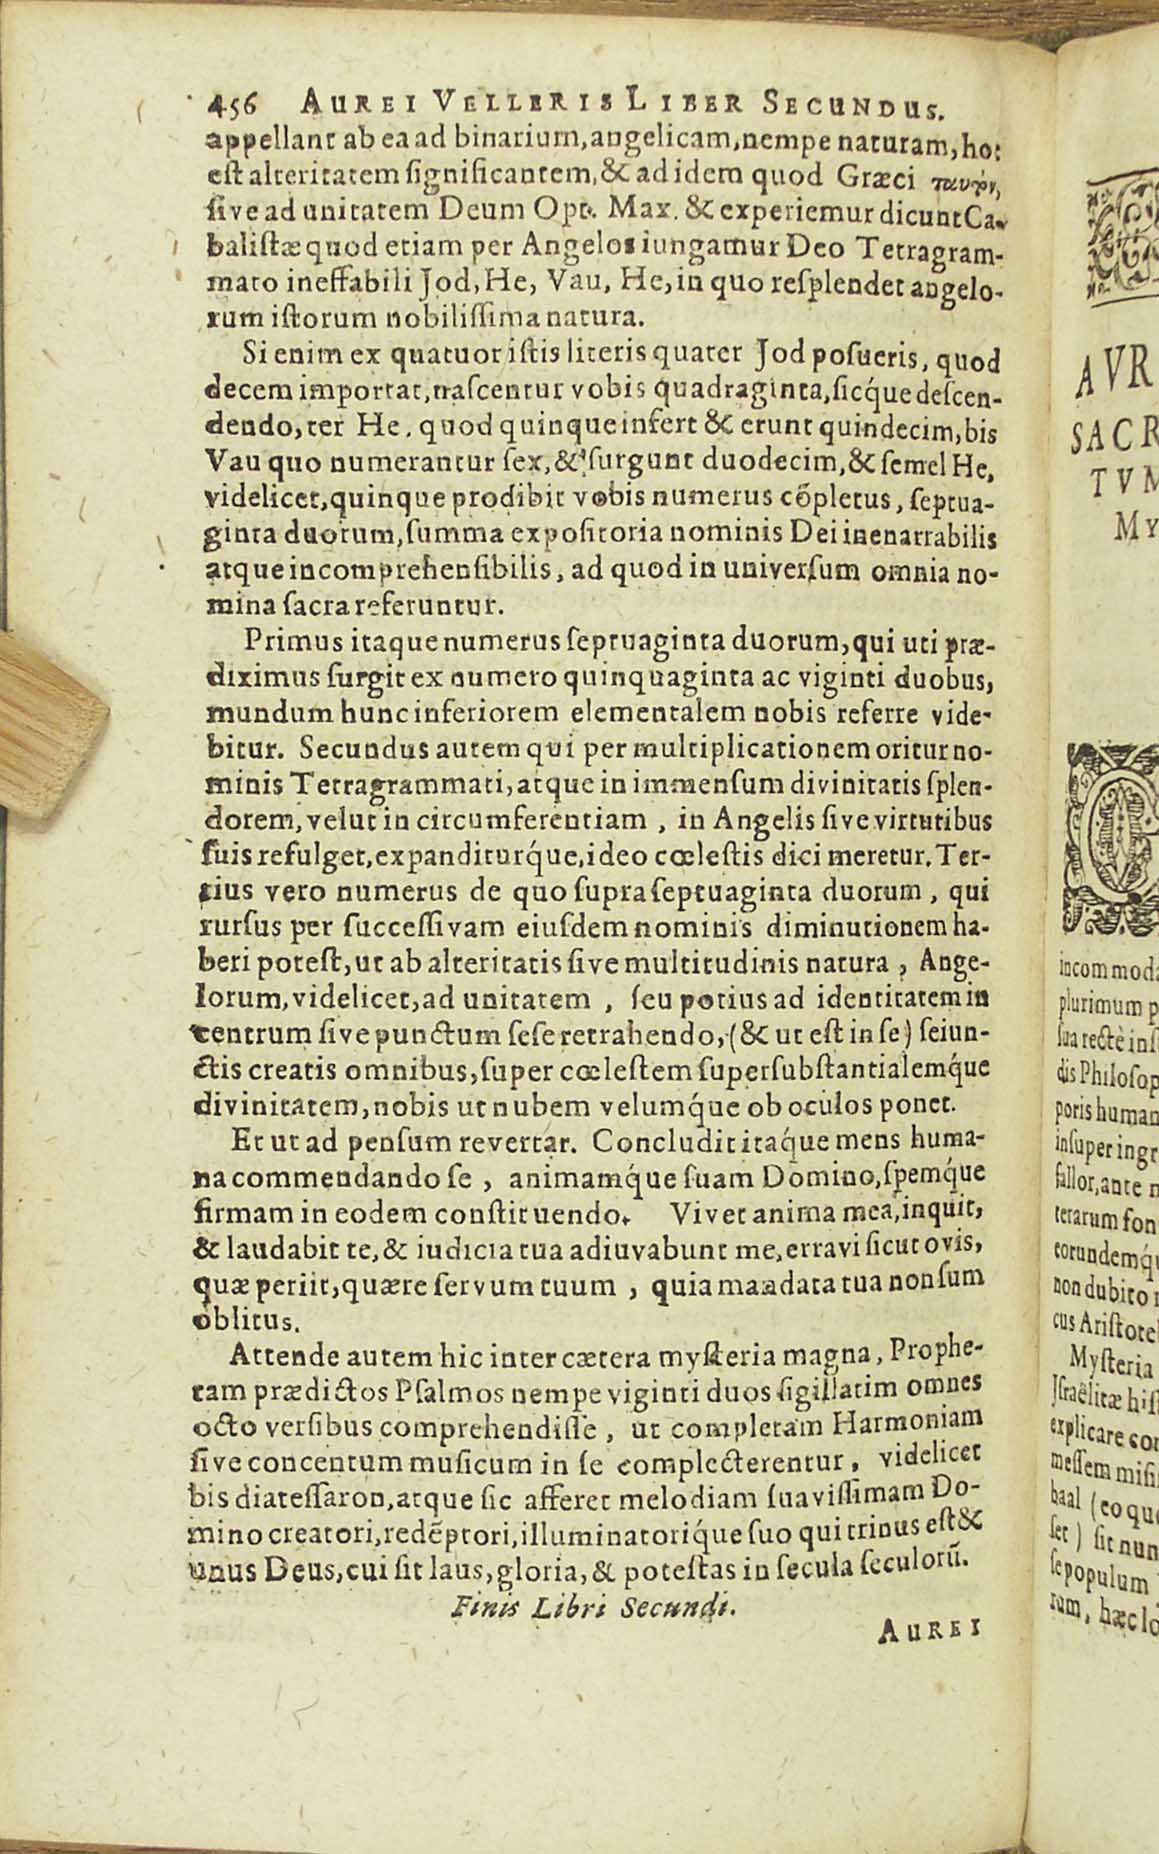 456 AUREI VELLERIS LIBER SECUNDUS.
appellant ab ea ad binarium, angelicam, nempe naturam, hoc
est alteritatem significantem, & ad idem quod Græci
sive ad unitatem Deum Opt. Max. & experiemur dicunt Ca-
balistæ quod etiam per Angelos iungamur Deo Tetragram-
mato ineffabili Jod, He, Vau, He, in quo resplendet angelo-
rum istorum nobilissima natura.
Si enim ex quatuor istis literis quater Jod posueris, quod
decem importat, nascentur vobis quadraginta, sicq́ue descen-
dendo, ter He. quod quinque infert & erunt quindecim, bis
Vau quo numerantur sex, & surgunt duodecim, & semel He,
videlicet, quinque prodibit vobis numerus cõpletus, septua-
ginta duorum, summa expositoria nominis Dei inenarrabilis
atque incomprehensibilis, ad quod in universum omnia no-
mina sacra referuntur.
Primus itaque numerus septuaginta duorum, qui uti præ-
diximus surgit ex numero quinquaginta ac viginti duobus,
mundum hunc inferiorem elementalem nobis referre vide-
bitur. Secundus autem qui per multiplicationem oritur no-
minis Tetragrammati, atque in immensum divinitatis splen-
dorem, velut in circumferentiam, in Angelis sive virtutibus
suis refulget, expanditurq́ue, ideo cœlestis dici meretur. Ter-
tius vero numerus de quo supra septuaginta duorum, qui
rursus per successivam eiusdem nominis diminutionem ha-
beri potest, ut ab alteritatis sive multitudinis natura, Ange-
lorum, videlicet, ad unitatem, seu potius ad identitatem in
centrum sive punctum sese retrahendo, (& ut est in se) seiun-
ctis creatis omnibus, super cœlestem supersubstantialemq́ue
divinitatem, nobis ut nubem velumq́ue ob oculos ponet.
Et ut ad pensum revertar. Concludit itaq́ue mens huma-
na commendando se, animamq́ue suam Domino, spemq́ue
firmam in eodem constituendo. Vivet anima mea, inquit,
& laudabit te, & iudicia tua adiuvabunt me, erravi sicut ovis,
quæ periit, quære servum tuum, quia mandata tua non sum
oblitus.
Attende autem hic inter cætera mysteria magna, Prophe-
tam prædictos Psalmos nempe viginti duos sigillatim omnes
octo versibus comprehendisse, ut completam Harmoniam
sive concentum musicum in se complecterentur, videlicet
bis diatessaron, atque sic afferet melodiam suavissimam Do-
mino creatori, redẽptori, illuminatoriq́ue suo qui trinus est &
unus Deus, cui sit laus, gloria, & potestas in secula seculorũ.
Finis Libri Secundi.
AUREI
AVR
SACR
TVM
MY
incommoda
plurimum p
sua rectè ins
dis Philosop
poris human
insuper ingr
fallor, ante n
terarum fon
eorundemq́u
non dubito
cus Aristote
Mysteria
Israëlitæ his
explicare con
messem misi
baal (eo que
set) sit nun
se populum
rum, hæc lo